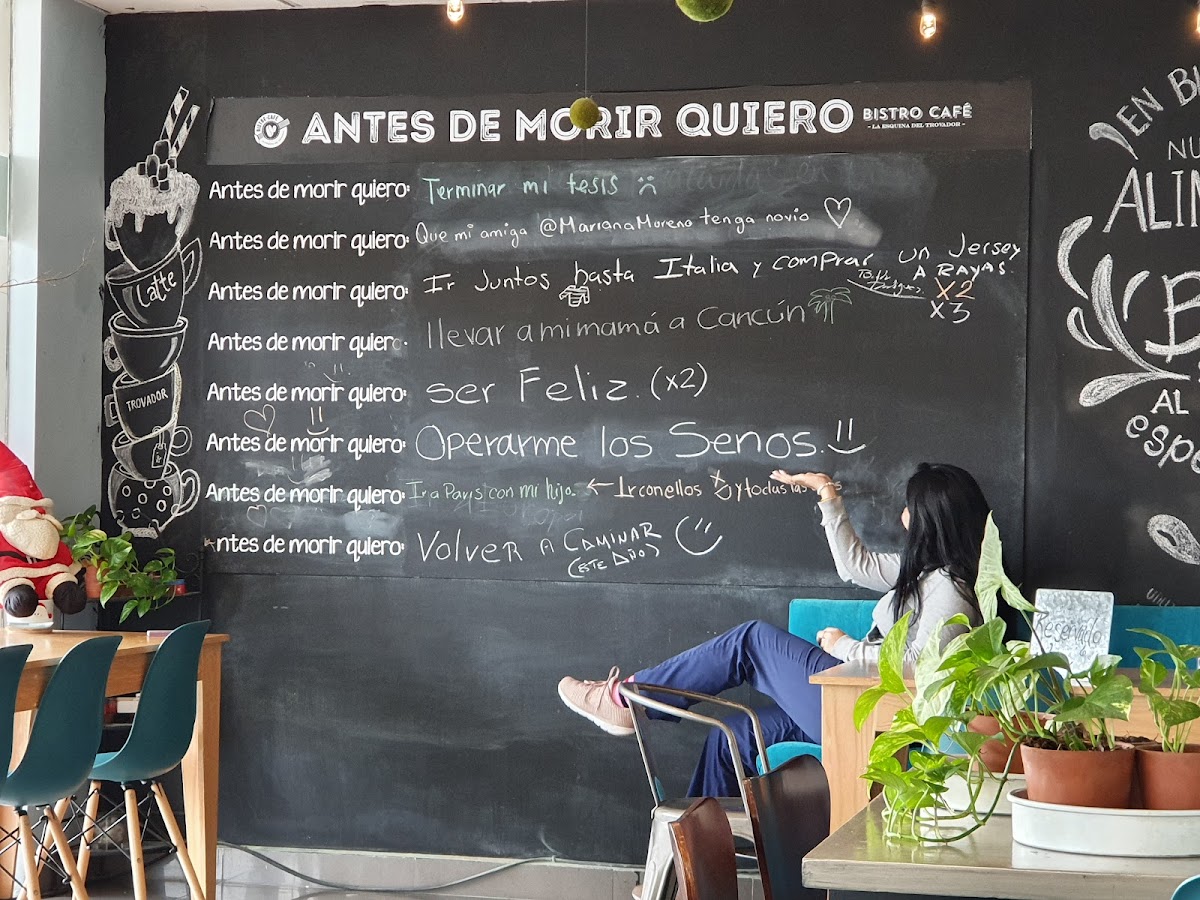 ANTES DE MORIR QUIERO
BISTRO CAFÉ
- LA ESQUINA DEL TROVADOR -
Antes de morir quiero: Terminar mi tesis
Antes de morir quiero: Que mi amiga @MarianaMoreno tenga novio
Antes de morir quiero: Ir Juntos hasta Italia y comprar un Jersey
A RAYAS.
X2
X3
Antes de morir quiero: llevar a mi mamá a Cancún
Antes de morir quiero: ser Feliz. (x2)
Antes de morir quiero: Operarme los Senos.
Antes de morir quiero: Ir a Paris con mi hijo. ← Ir con ellos y todas las
Antes de morir quiero: VOLVER A CAMINAR
(ESTE AÑO)
Latte
TROVADOR
EN
NU
ALIM
AL
espe
Reservado